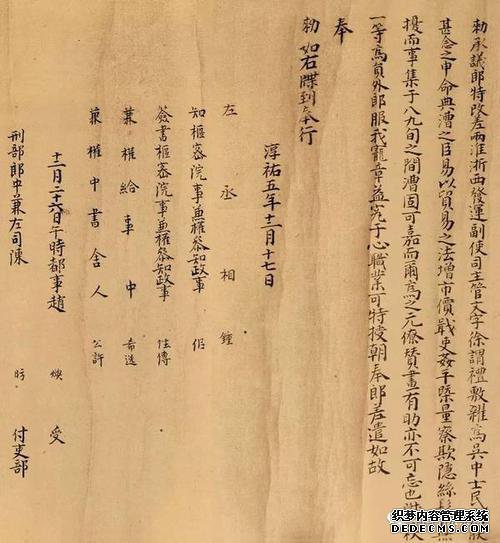 勑承議郎特改差兩淮浙西發運副使司主管文字徐謂禮敷雜爲吳中士民朕
甚念之申命典漕之臣易以貿易之法增市價戢吏姦平槩量察欺隱絲無
擾而事集于八九旬之間漕固可嘉而爾爲之元僚賛畫有助亦不可忘也秩
一等爲員外郎服我寵章益究于心職業可特授朝奉郎差遣如故
奉
勑如右牒到奉行
淳祐五年十一月十七日
左丞相鍾
知樞密院事兼權參知政事 伯
簽書樞密院事兼權參知政事 性傳
兼權給事中 希逸
兼權中書舍人 公許
十一月二十六日午時都事趙 煥 受
刑部郎中兼左司陳 昉 付吏部
织梦内容管理系统
DEDECMS.COM